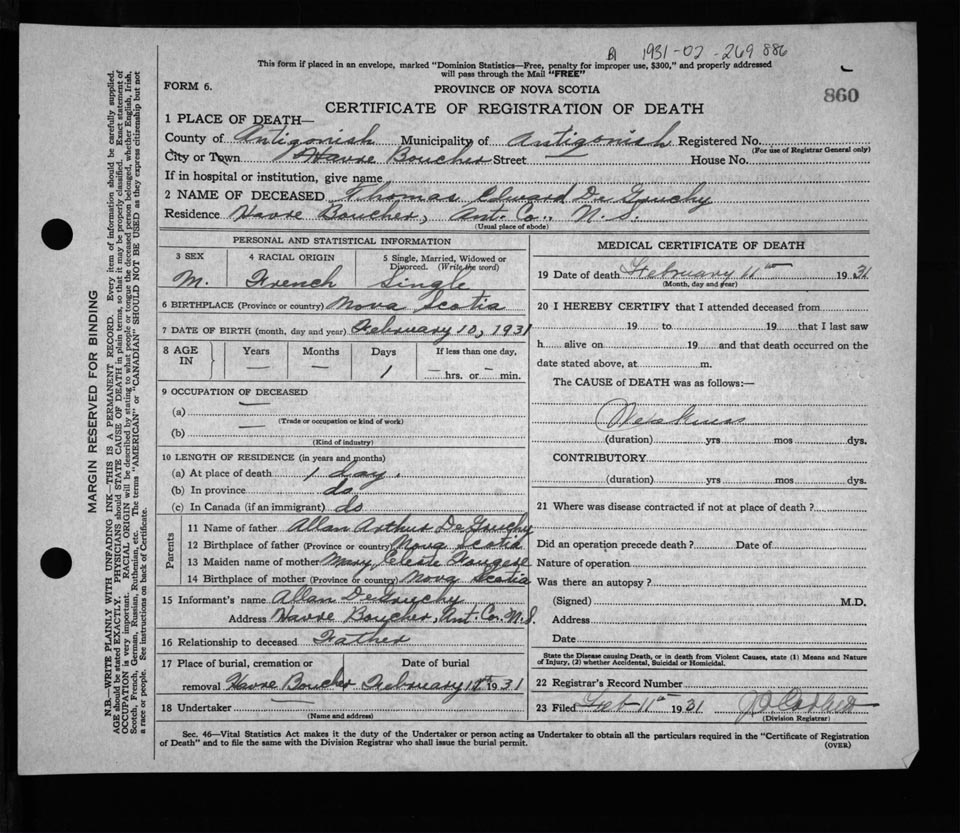 A 1931-02-269 886
This form if placed in an envelope, marked "Dominion Statistics—Free, penalty for improper use, $300," and properly addressed
will pass through the Mail "FREE"
FORM 6.
PROVINCE OF NOVA SCOTIA
860
CERTIFICATE OF REGISTRATION OF DEATH
1 PLACE OF DEATH—
County of Antigonish Municipality of Antigonish Registered No.
(For use of Registrar General only)
City or Town Havre Boucher Street House No.
If in hospital or institution, give name
2 NAME OF DECEASED Thomas Edward De Gruchy
Residence Havre Boucher, Ant. Co., N. S.
(Usual place of abode)
PERSONAL AND STATISTICAL INFORMATION
3 SEX 4 RACIAL ORIGIN 5 Single, Married, Widowed or
Divorced. (Write the word)
M. French Single
6 BIRTHPLACE (Province or country) Nova Scotia
7 DATE OF BIRTH (month, day and year) February 10, 1931
8 AGE IN Years Months Days If less than one day,
— — 1 — hrs. or — min.
9 OCCUPATION OF DECEASED
(a) —
(Trade or occupation or kind of work)
(b) —
(Kind of industry)
10 LENGTH OF RESIDENCE (in years and months)
(a) At place of death 1 day.
(b) In province do
(c) In Canada (if an immigrant) do
Parents
11 Name of father Allan Arthur De Gruchy
12 Birthplace of father (Province or country) Nova Scotia
13 Maiden name of mother Mary Celeste
14 Birthplace of mother (Province or country) Nova Scotia
15 Informant's name Allan DeGruchy
Address Havre Boucher, Ant. Co. N. S.
16 Relationship to deceased Father
17 Place of burial, cremation or Date of burial
removal Havre Boucher February 12th 1931
18 Undertaker —
(Name and address)
MEDICAL CERTIFICATE OF DEATH
19 Date of death February 11th 1931
(Month, day and year)
20 I HEREBY CERTIFY that I attended deceased from
19 to 19 that I last saw
h alive on 19 and that death occurred on the
date stated above, at m.
The CAUSE of DEATH was as follows:—
Weakness
(duration) yrs mos dys.
CONTRIBUTORY
(duration) yrs. mos. dys.
21 Where was disease contracted if not at place of death?
Did an operation precede death? Date of
Nature of operation
Was there an autopsy?
(Signed) M.D.
Address
Date
State the Disease causing Death, or in death from Violent Causes, state (1) Means and Nature
of Injury, (2) whether Accidental, Suicidal or Homicidal.
22 Registrar's Record Number
23 Filed Feb 11th 1931
(Division Registrar)
Sec. 46—Vital Statistics Act makes it the duty of the Undertaker or person acting as Undertaker to obtain all the particulars required in the "Certificate of Registration
of Death" and to file the same with the Division Registrar who shall issue the burial permit.
(OVER)
MARGIN RESERVED FOR BINDING
N.B.—WRITE PLAINLY WITH UNFADING INK—THIS IS A PERMANENT RECORD. Every item of information should be carefully supplied.
AGE should be stated EXACTLY. PHYSICIANS should STATE CAUSE OF DEATH in plain terms, so that it may be properly classified. Exact statement of
OCCUPATION is very important. RACIAL ORIGIN will be described by stating to what people or tongue the deceased person belonged, whether English, Irish,
Scotch, French, German, Russian, Ruthenian, etc. The terms "AMERICAN" or "CANADIAN" SHOULD NOT BE USED as they express citizenship but not
a race or people. See instructions on back of Certificate.